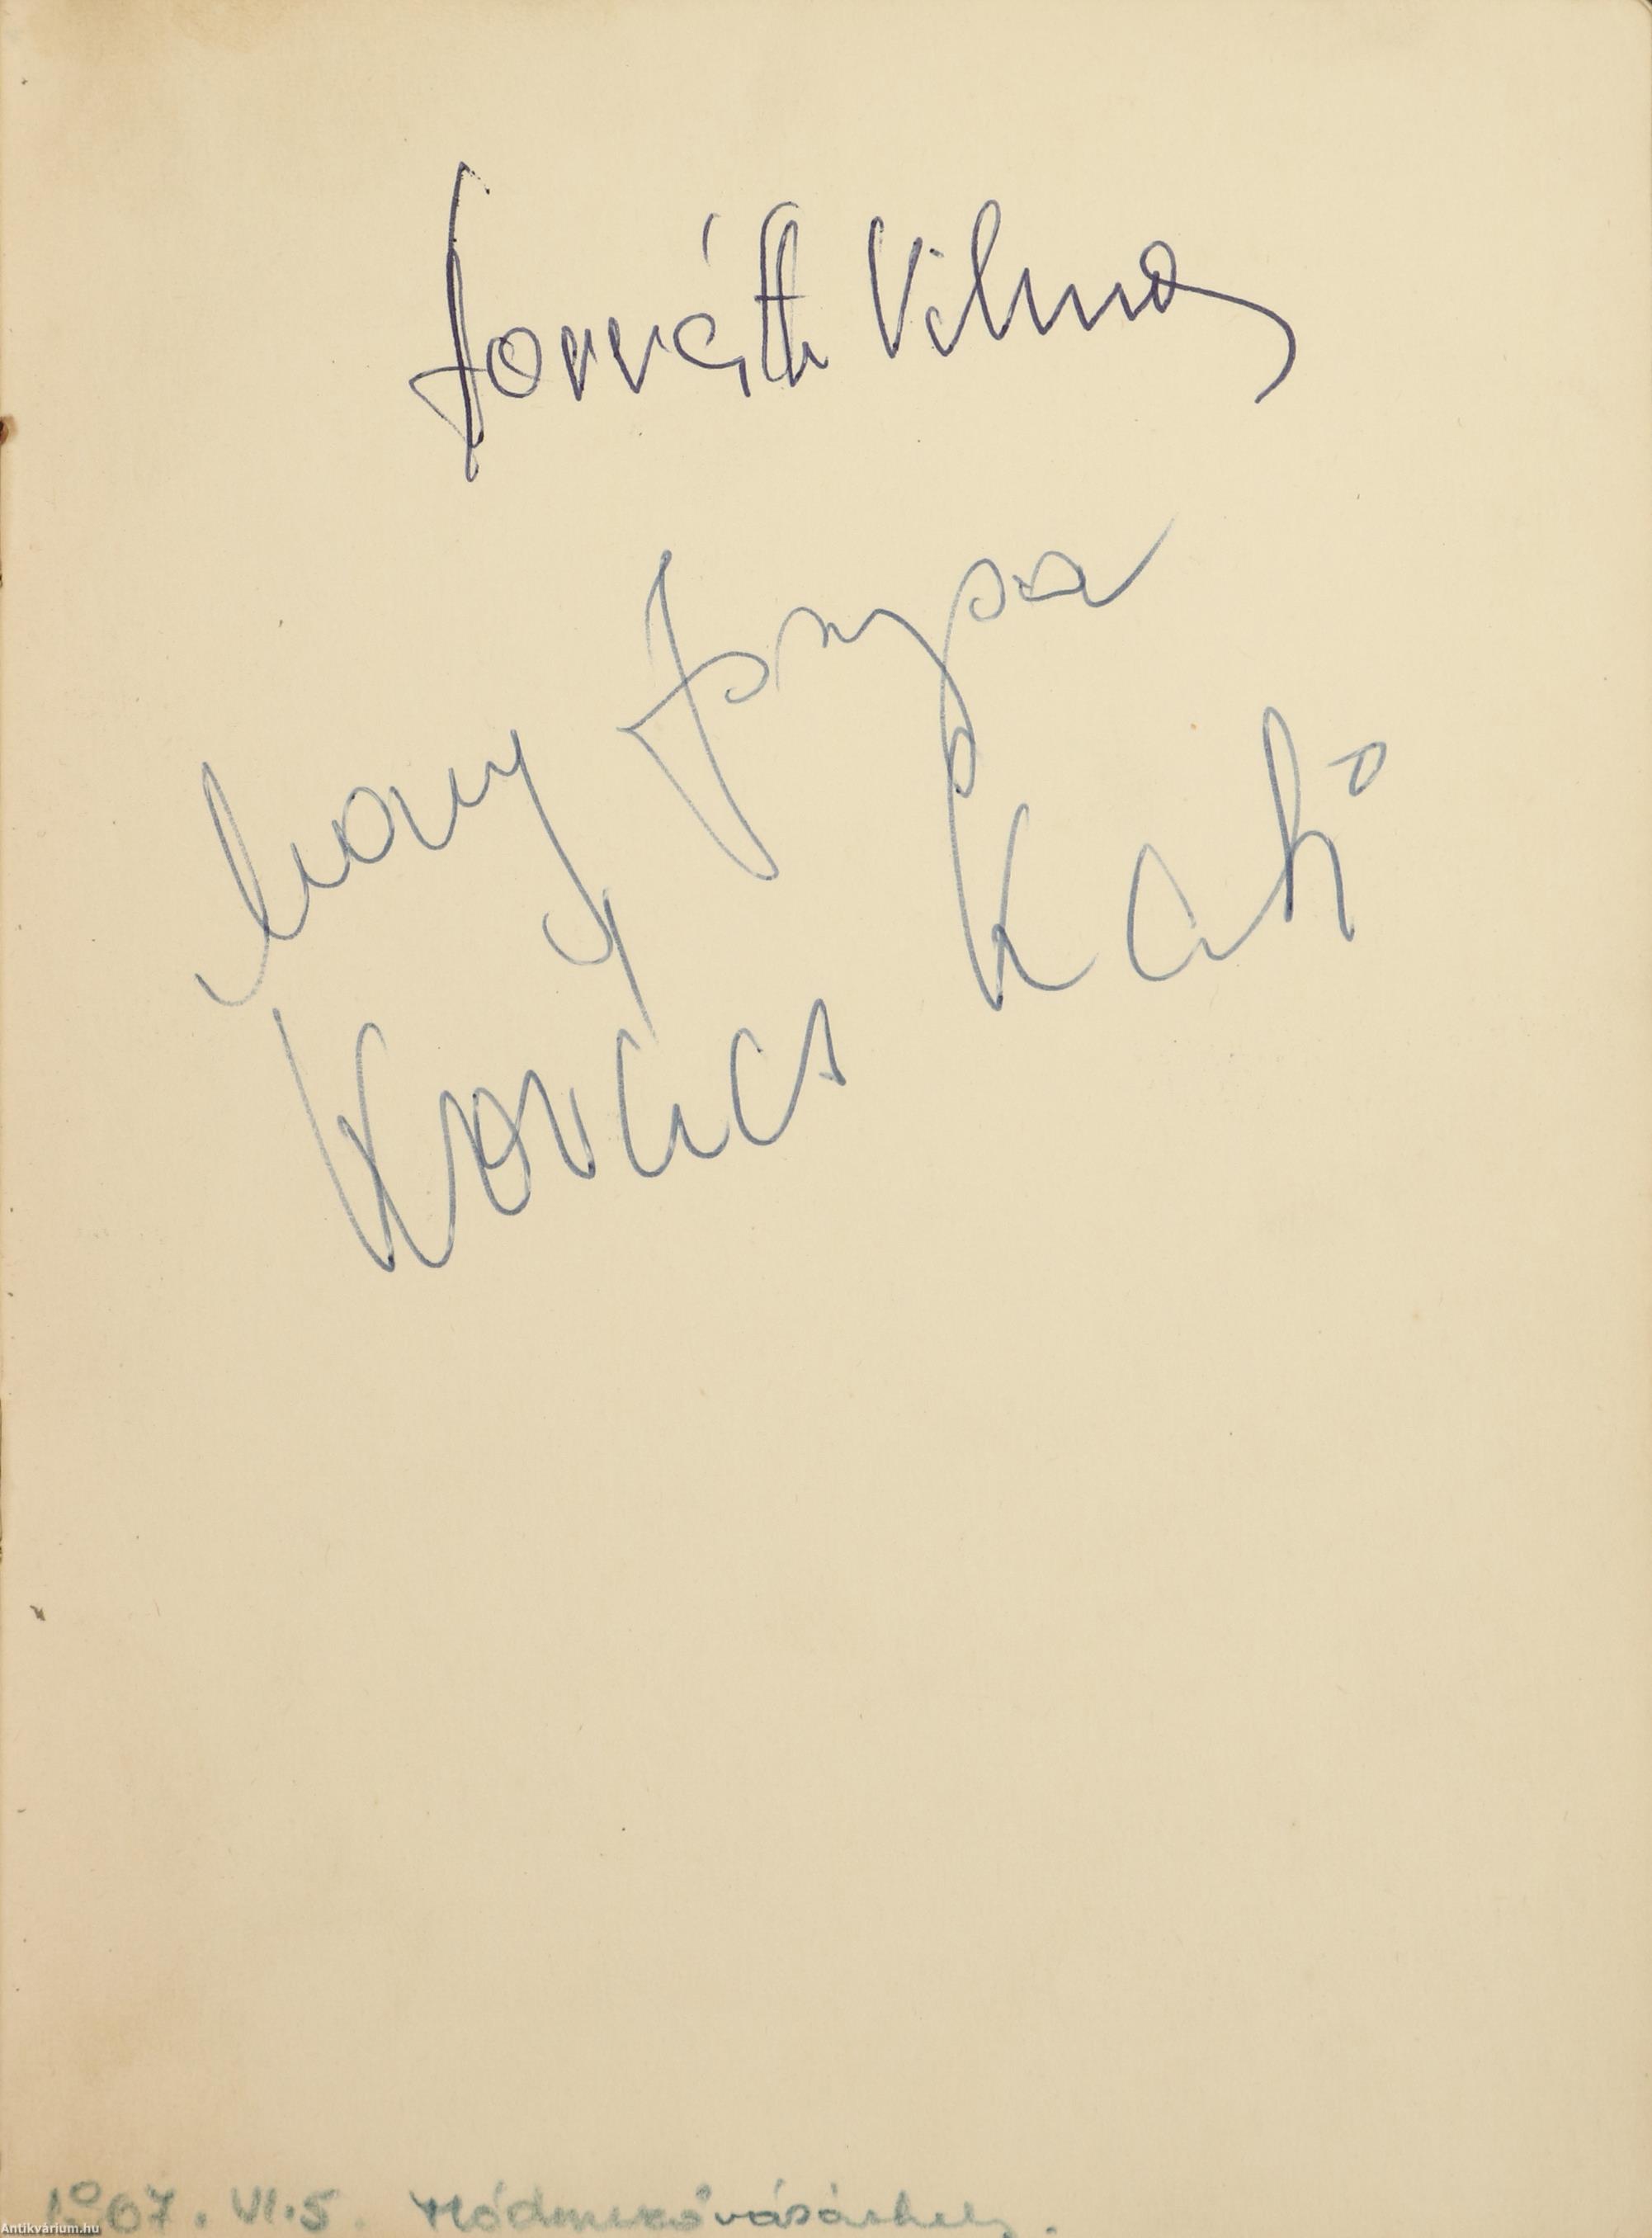 Horváth Vilmos
Kati
Kovács
1967. VI. 5. Hódmezővásárhely.
Antikvárium.hu